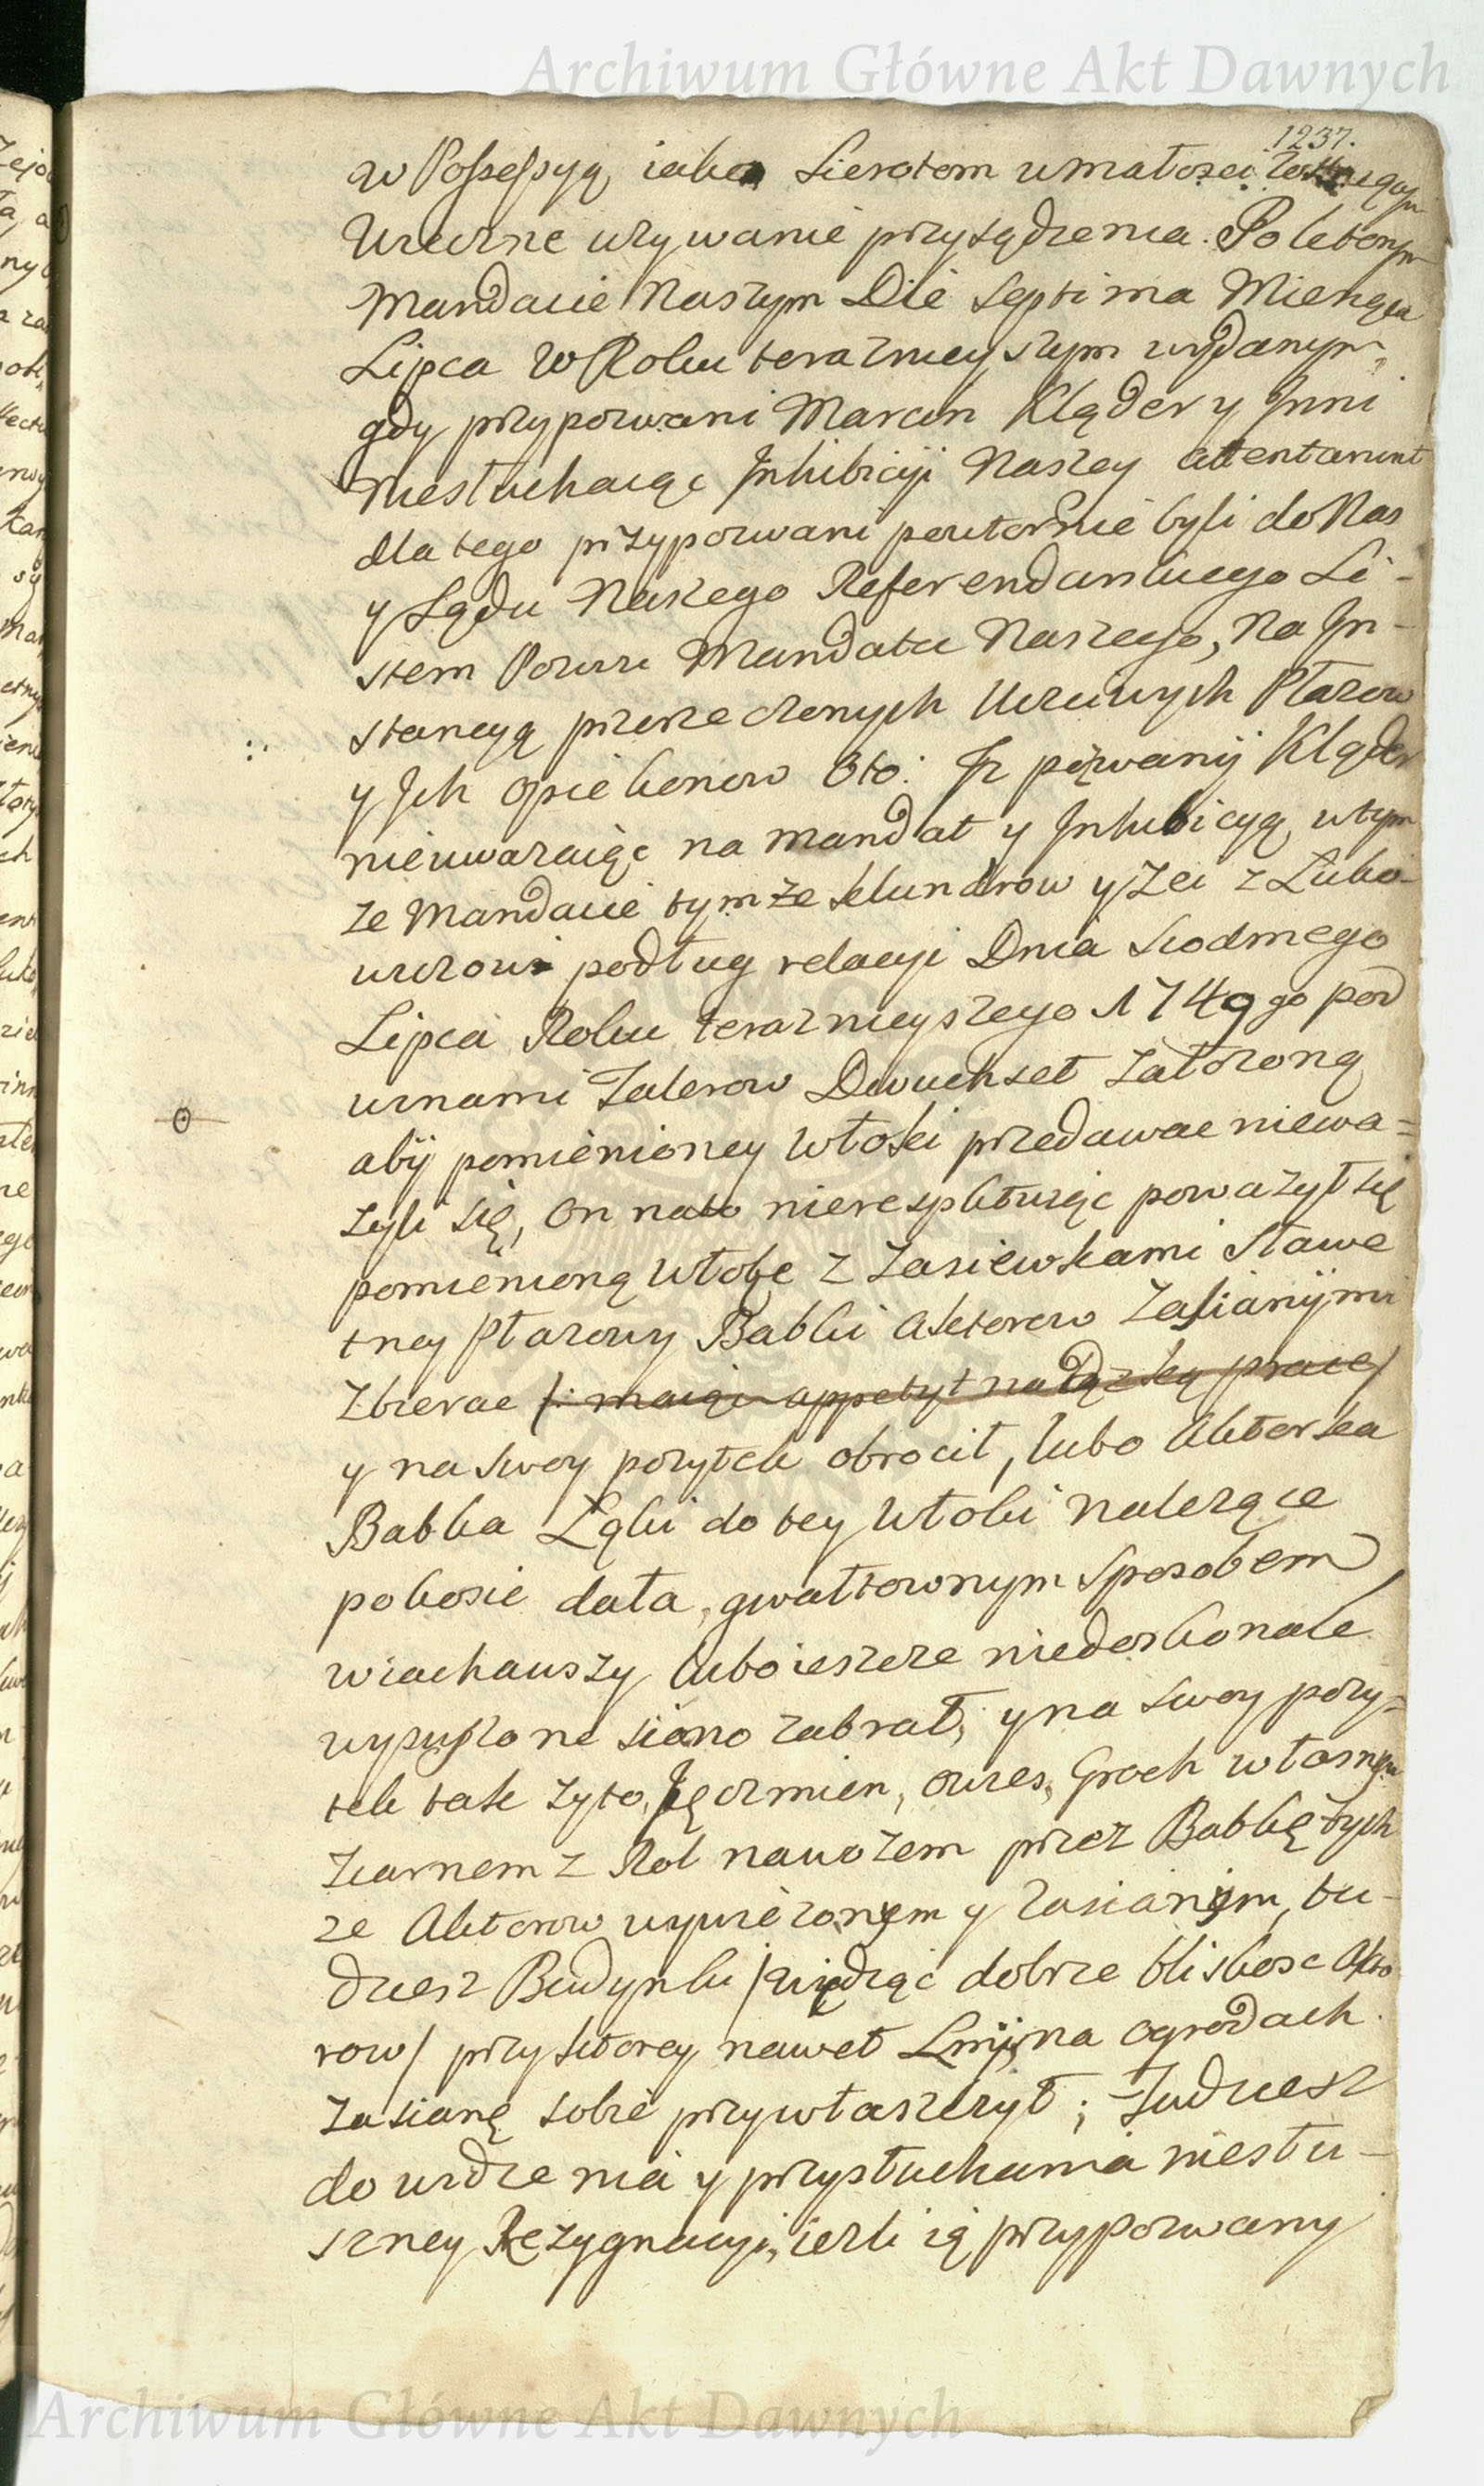 Archiwum Główne Akt Dawnych
1237.
w Possessyą iako Sierotom w małosci
Wieczne używanie przysądzenia. Po ktorym
Mandacie Naszym Die Septima Miesąca
Lipca w Roku teraznieyszym wydanym,
gdy przypozwani Marcin Kląder y Inni
niesłuchaiąc Inhibicyi Naszey attentarunt
dla tego przypozwani powtornie byli do Nas
y Sądu Naszego Referendarskiego Li-
stem Pozwu Mandatu Naszego, Na In-
stancyą przerzeczonych Uczciwych Ptazow
y Ich Opiekonow Oto: Iz pozwanij Kląder
nieuwazaiąc na Mandat y Inhibicyą w tym
ze Mandacie tymze Klundrow y Zei z Lubo-
według relacyi Dnia Siodmego
Lipca Roku teraznieyszego 1749 go pod
winami Talerow Dwuchset załozoną
abij pomienioney Włoki przedawac niewa=
zyli się, On na to nierespektuiąc powazył się
pomienioną Włokę z zasiewkami Sławe
tney Ptazowy Babki Aktorow Zasianijmi
Zbierac /: maiąc appetyt na Dąską pracę/
y na swoy pozytek obrocił, lubo Aktorska
Babka Łąki do tey Włoki nalezące
pokosic dała, gwałtownym sposobem
wiachawszy lubo ieszcze niedoskonale
wysuszone siano zabrał, y na swoy pozy=
tek tak Zyto, Jęczmien, Owies, Groch własnym
Ziarnem z Rol nawozem przez Babkę tych
ze Aktorow wywiezonym y Zasianijm, tu-
dziesz Budynku /widząc dobrze bliskosc Akto
row/ przy ktorey nawet Lnij na ogrodach
Zasianę sobie przywłaszczył; Tudziesz
do widzenia y przysłuchania niesłu-
szney Rezygnacyi, iesli ią przypozwany
Archiwum Główne Akt Dawnych